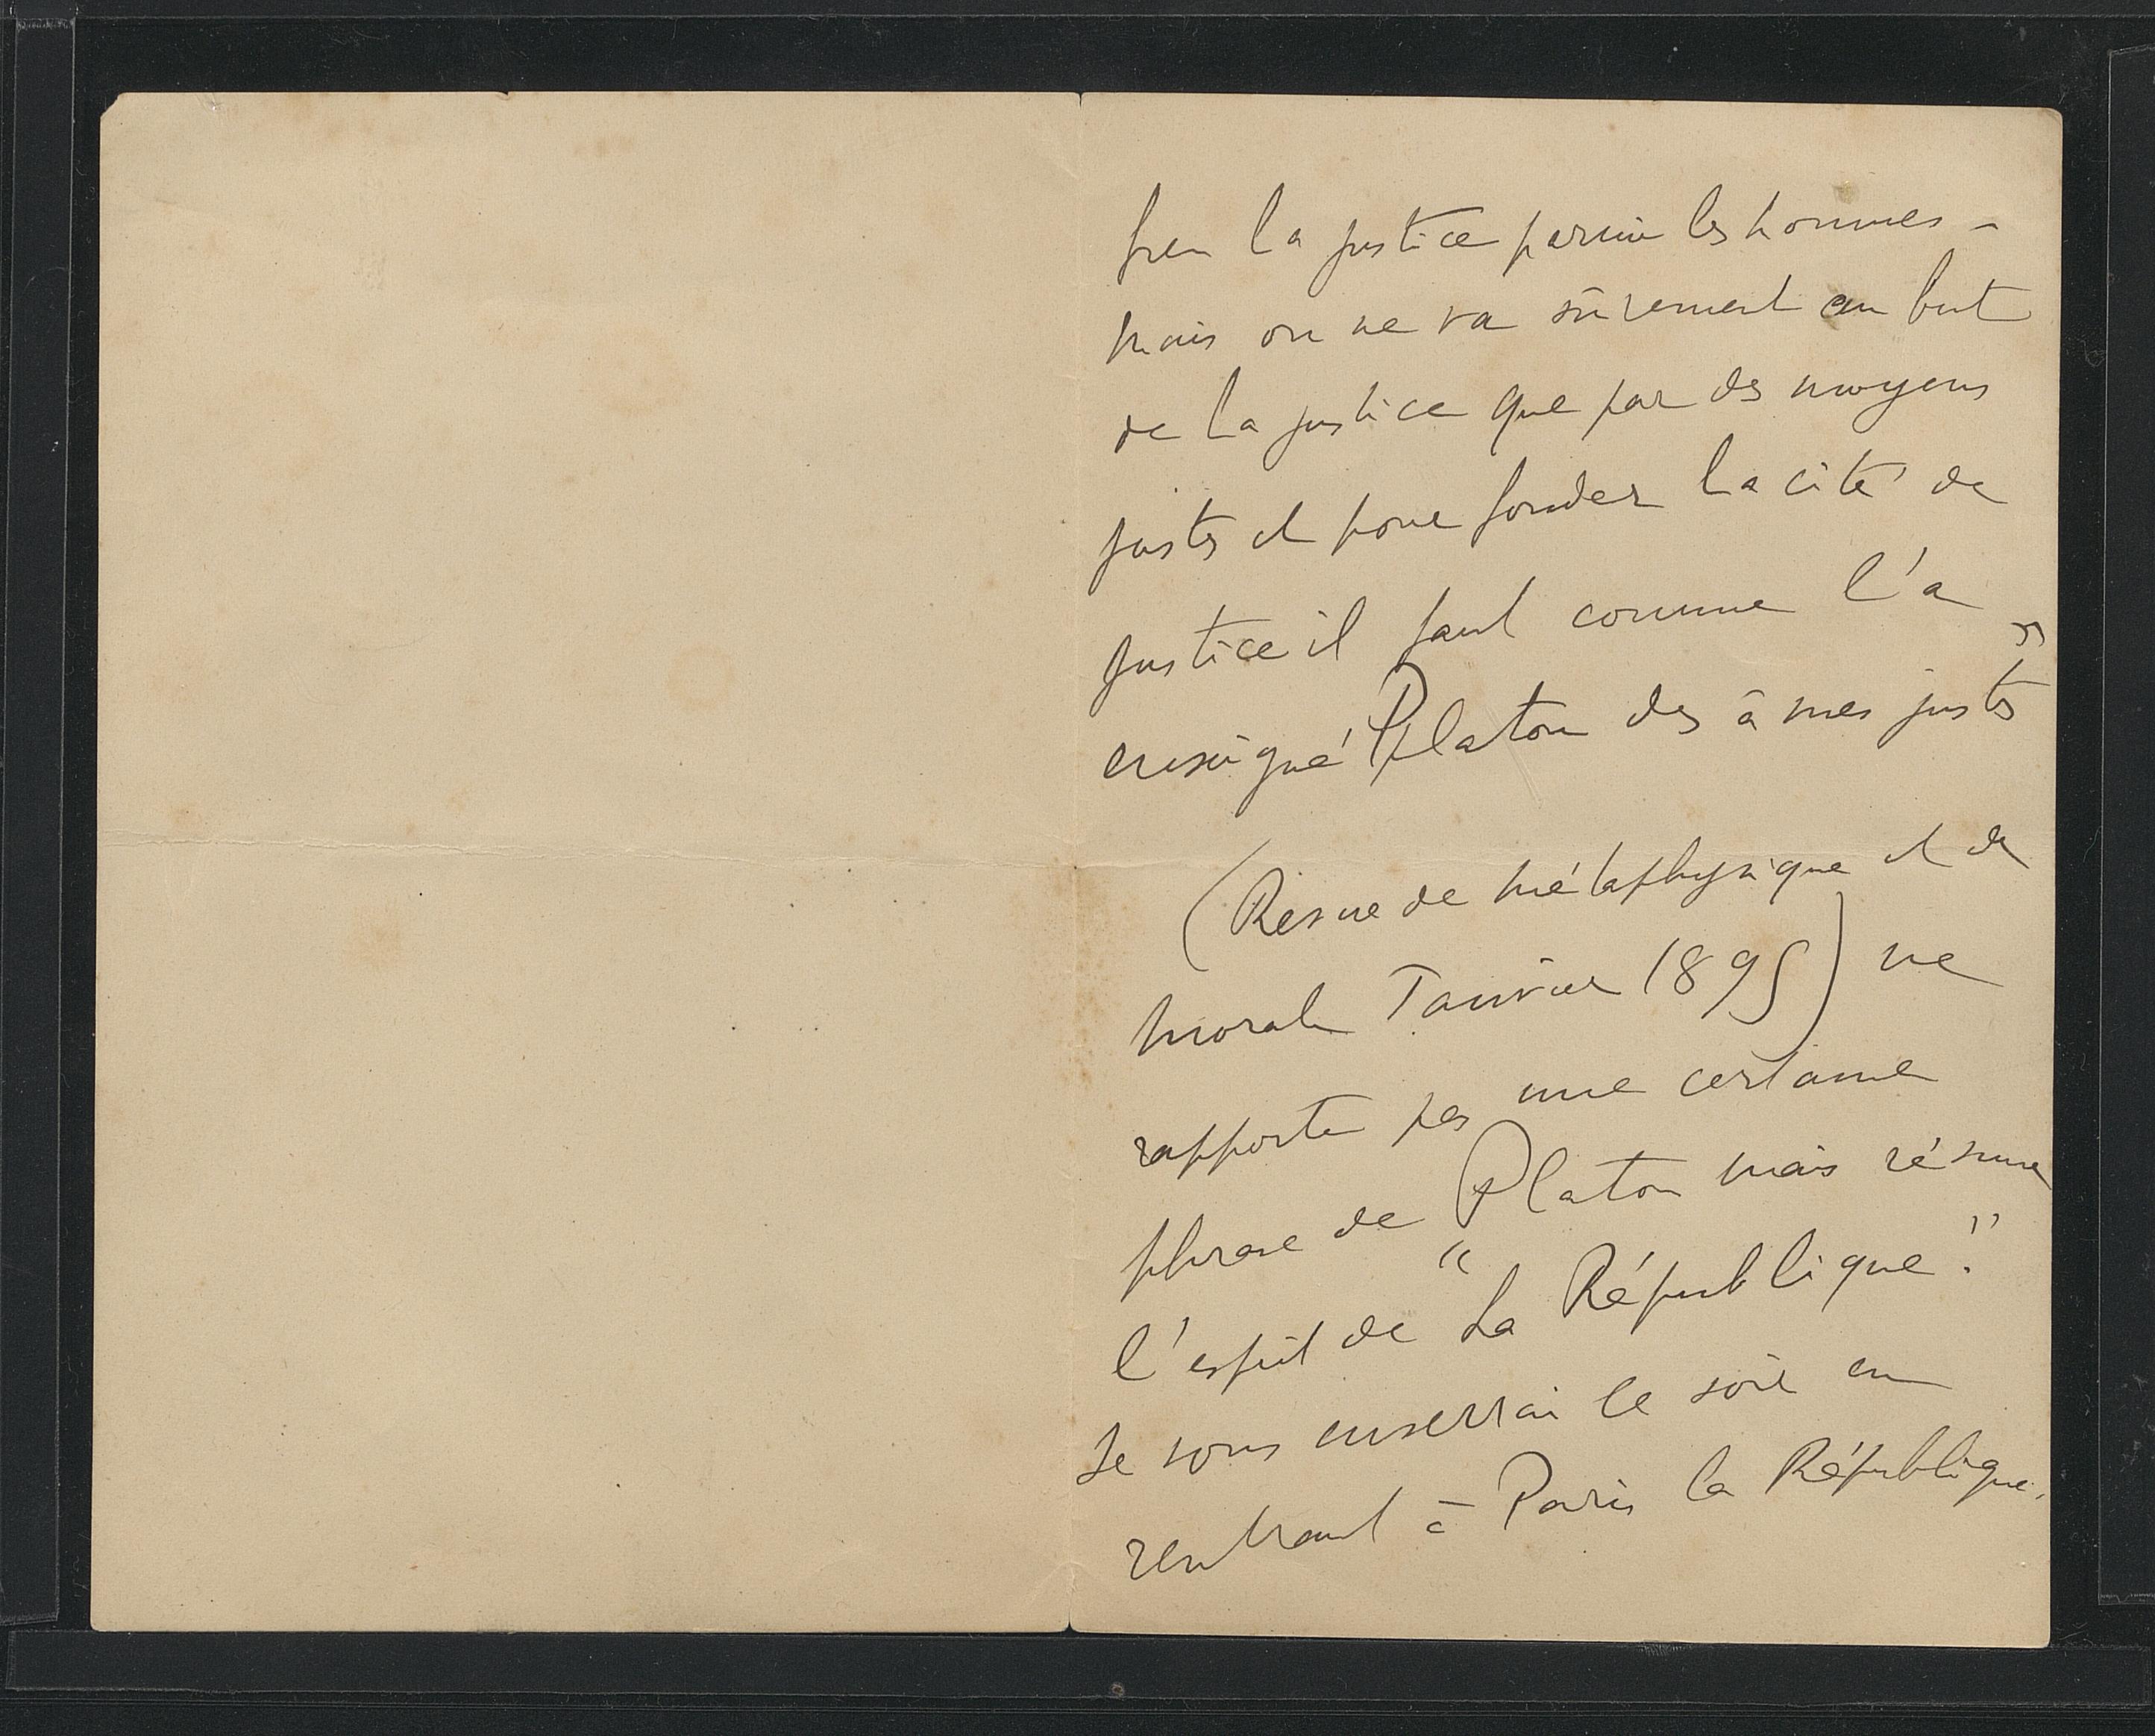 peu la justice parmi les hommes –
mais on ne va sûrement au but
de la justice que par des moyens
justes et pour fonder la cité de
justice il faut comme l'a
enseigné Platon des âmes justes »
(Revue de métaphysique et de
morale Janvier 1895) ne
rapporte pas une certaine
phrase de Platon mais résume
l'esprit de "La République".
Je vous enverrai ce soir en
rentrant à Paris la République.